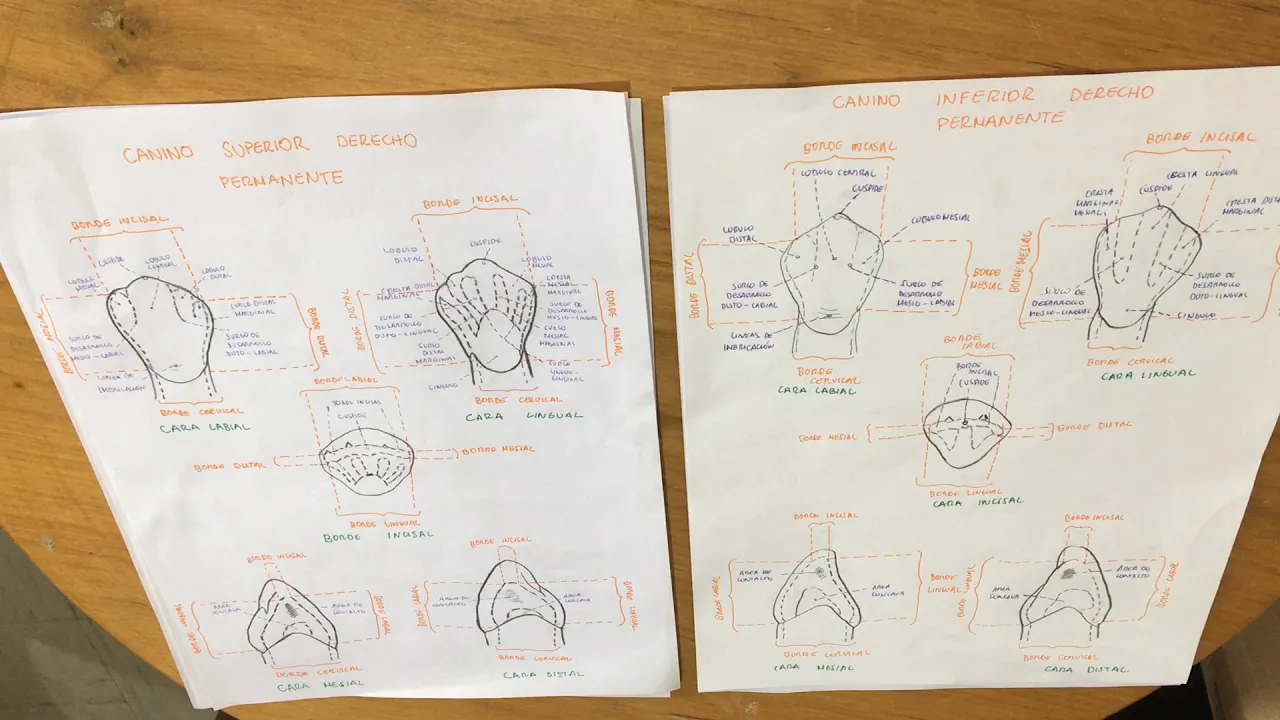 CANINO SUPERIOR DERECHO
PERMANENTE
BORDE INCISAL
CUSPIDE
LOBULO
CENTRAL
LOBULO
DISTAL
SURCO DISTAL
MARGINAL
SURCO DE
DESARROLLO
DISTO-LABIAL
SURCO DE
DESARROLLO
MESIO-LABIAL
BORDE MESIAL
BORDE DISTAL
BORDE CERVICAL
CARA LABIAL
BORDE INCISAL
LOBULO
DISTAL
CUSPIDE
CRESTA DISTAL
MARGINAL
SURCO DE
DESARROLLO
DISTO-LINGUAL
SURCO
DISTAL
MARGINAL
CINGULO
LOBULO
MESIAL
CRESTA
MESIAL
MARGINAL
SURCO DE
DESARROLLO
MESIO-LINGUAL
MESIAL
MARGINAL
SURCO
BORDE DISTAL
BORDE MESIAL
BORDE CERVICAL
CARA LINGUAL
BORDE LABIAL
BORDE INCISAL
CUSPIDE
BORDE DISTAL
BORDE MESIAL
BORDE LINGUAL
BORDE INCISAL
BORDE INCISAL
AREA
CONCAVA
AREA DE
CONTACTO
BORDE CERVICAL
CARA MESIAL
BORDE INCISAL
AREA DE
CONTACTO
AREA
CONCAVA
BORDE CERVICAL
CARA DISTAL
CANINO INFERIOR DERECHO
PERMANENTE
BORDE INCISAL
LOBULO CENTRAL
CUSPIDE
LOBULO
DISTAL
LOBULO MESIAL
SURCO DE
DESARROLLO
DISTO-LABIAL
SURCO DE
DESARROLLO
MESIO-LABIAL
LINEAS DE
IMBRICACIÓN
BORDE DISTAL
BORDE
MESIAL
BORDE
CERVICAL
CARA LABIAL
BORDE INCISAL
CRESTA LINGUAL
CÚSPIDE
CRESTA
MARGINAL
MESIAL
CRESTA DISTAL
MARGINAL
BORDE MESIAL
SURCO DE
DESARROLLO
MESIO-LINGUAL
SURCO DE
DESARROLLO
DISTO-LINGUAL
CINGULO
BORDE CERVICAL
CARA LINGUAL
BORDE
LABIAL
BORDE
INCISAL
CUSPIDE
BORDE MESIAL
BORDE DISTAL
BORDE LINGUAL
CARA INCISAL
BORDE INCISAL
AREA DE
CONTACTO
AREA
CONCAVA
BORDE LABIAL
BORDE
LINGUAL
BORDE CERVICAL
CARA MESIAL
BORDE INCISAL
AREA DE
CONTACTO
AREA
CONCAVA
BORDE LINGUAL
BORDE LABIAL
BORDE CERVICAL
CARA DISTAL